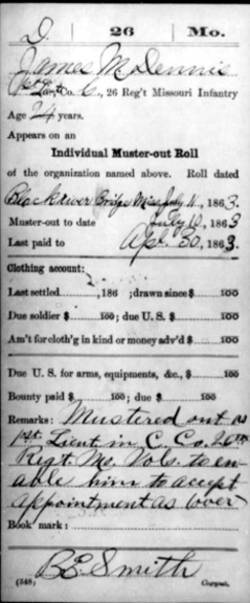 D. | 26 | Mo.
James M Dennis
1st Lt, Co. C, 26 Reg't Missouri Infantry
Age 24 years.
Appears on an
Individual Muster-out Roll
of the organization named above. Roll dated
Black River Bridge Miss July 11, 1863.
Muster-out to date July 10, 1863
Last paid to Apr. 30, 1863
Clothing account:
Last settled ......, 186 ; drawn since $ ...... 100
Due soldier $ ...... 100; due U. S. $ ...... 100
Am't for cloth'g in kind or money adv'd $ ...... 100
Due U. S. for arms, equipments, &c., $ ...... 100
Bounty paid $ ...... 100; due $ ...... 100
Remarks: Mustered out as
1st. Lieut in C. Co. 26th
Regt. Mo. Vols. to en-
able him to accept
appointment as
Book mark:
B.E. Smith
(548) Copyist.